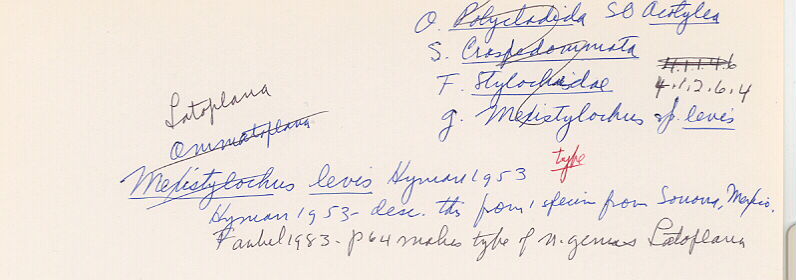 O. Polycladida SO Acotylea
S. Craspedommata
4.1.1.4.6
F. Stylochidae 4.1.2.6.4
g. Mexistylochus sp. levis
Latoplana
Ommatoplana
type
Mexistylochus levis Hyman 1953
Hyman 1953 - desc. this from 1 specim from Sonora, Mexico.
Faubel 1983 - p 64 makes type of n. genus Latoplana